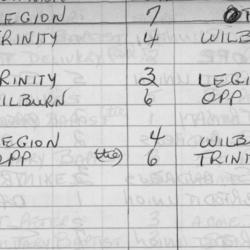 LEGION 7
TRINITY 4 WILB
TRINITY 3 LEGI
WILBURN 6 OPP
LEGION 4 WILB
OPP (tie) 6 TRINIT